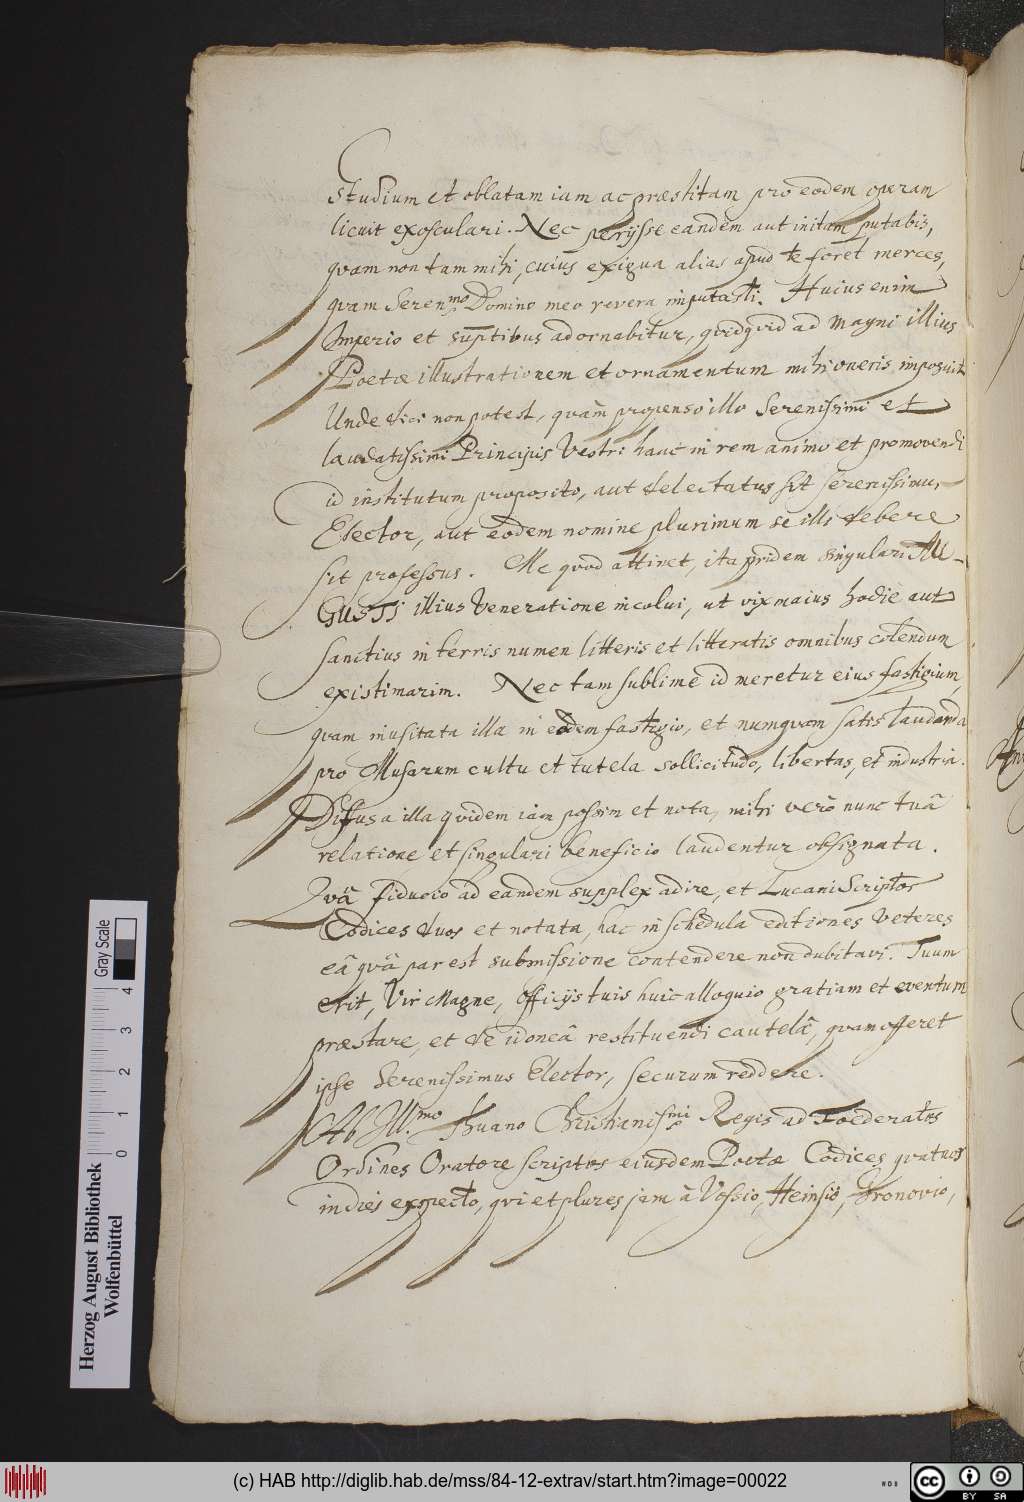 studium et oblatam iam ac præstitam pro eodem operam
licuit exosculari. Nec perijsse eandem aut initam putabis,
quam non tam mihi, cuius exigua alias apud te foret merces,
quam Seren.mo Domino meo revera imputasti. Huius enim
Imperio et sũptibus adornabitur, quidquid ad Magni illius
Poetæ illustrationem et ornamentum mihi oneris imposuit.
Unde dici non potest, quàm propenso illo Serenissimi et
laudatissimi Principis Vestri hanc in rem animo et promovendi
id institutum proposito, aut delectatus sit serenissimus
Elector, aut eodem nomine plurimum se illi debere
sit professus. Me quod attinet, ita pridem singulari AU-
GUSTI illius Veneratione incolui, ut vix maius hodiè aut
sanctius in terris numen litteris et litteratis omnibus colendum
existimarim. Nec tam sublime id meretur eius fastigium,
quam inusitata illa in eodem fastigio, et numquam satis laudanda
pro Musarum cultu et tutela sollicitudo, libertas, et industria.
Diffusa illa quidem iam passim et nota, mihi verò nunc tuâ
relatione et singulari beneficio laudentur obsignata.
Quâ fiducio ad eandem supplex adire, et Lucani Scriptos
Codices duos et notata, hac in schedula editiones Veteres
eâ quâ par est submissione contendere non dubitavi. Tuum
erit, Vir Magne, officijs tuis huic alloquio gratiam et eventum
præstare, et de idoneâ restituendi cautelâ, quam offeret
ipse Serenissimus Elector, securum reddere.
Ab Ill.mo Thuano Christianiss.mi Regis ad Foederatos
Ordines Oratore scriptos eiusdem Poetæ Codices quatuor
in dies exspecto, qui et plures jam à Vossio, Heinsio, Gronovio,
Herzog August Bibliothek
Wolfenbüttel
Gray Scale
0 1 2 3 4
(c) HAB http://diglib.hab.de/mss/84-12-extrav/start.htm?image=00022
CC BY SA